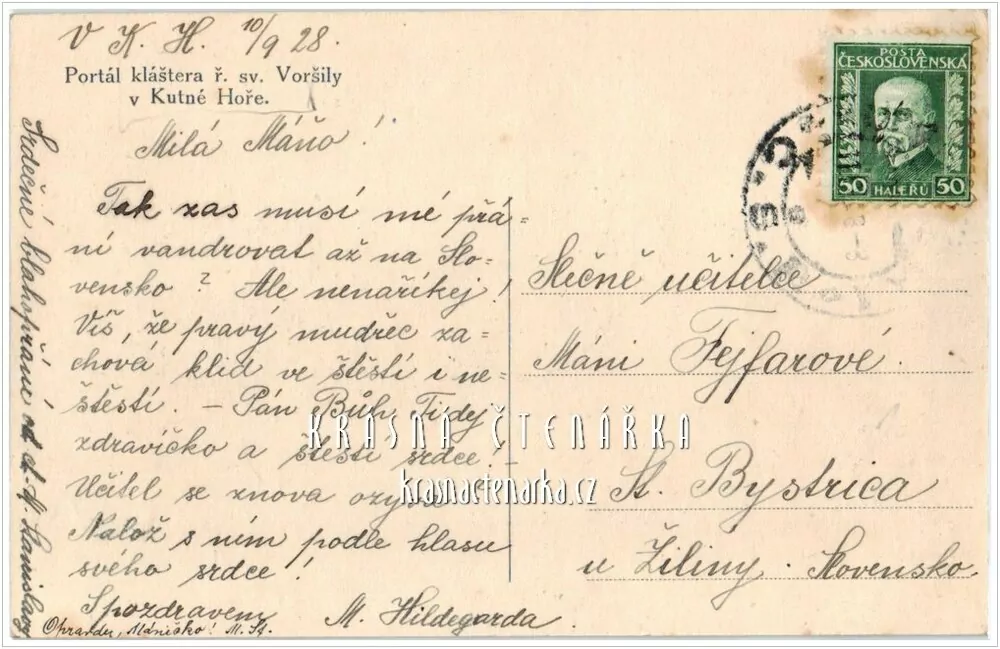 V K. H. 10/9 28.
Portál kláštera ř. sv. Voršily
v Kutné Hoře.
Milá Máňo!
Tak zas musí mé přá-
ní vandrovat až na Slo-
vensko? Ale nenaříkej!
Víš, že pravý mudřec za-
chová klid ve štěstí i ne-
štěstí. – Pán Bůh Ti dej
zdravíčko a štěstí srdce! –
Učitel se znova ozývá
Nalož s ním podle hlasu
svého srdce!
S pozdravem
M. Hildegarda.
Opravdu, Mániško! M. St.
Srdečné blahopřání od
POSTA
ČESKOSLOVENSKÁ
50 HALÉŘŮ 50
Slečně učitelce
Máni Fejfarové.
St. Bystrica
u Žiliny. Slovensko.
KRÁSNÁ ČTENÁŘKA
krasnactenarka.cz